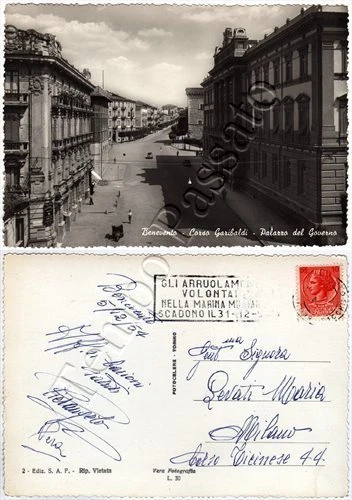 Benevento - Corso Garibaldi - Palazzo del Governo
Un Tuffo nel Passato
Benevento
5/12/54
GLI ARRUOLAMENTI
VOLONTARI
NELLA MARINA MILITARE
SCADONO IL 31-12-
Gent.ma Signora
Levati Maria
Milano
Corso Ticinese 44
FOTOCELERE - TORINO
2 - Ediz. S. A. P. - Rip. Vietata
Vera Fotografia
L. 30